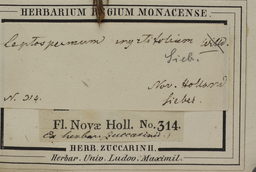 HERBARIUM REGIUM MONACENSE.
Leptospermum myrtifolium
Sieb.
Nov. Holland
N. 314. Sieber.
Fl. Novæ Holl. No. 314.
Ex herbar. Zuccarinii
HERB. ZUCCARINII.
Herbar. Univ. Ludov. Maximil.